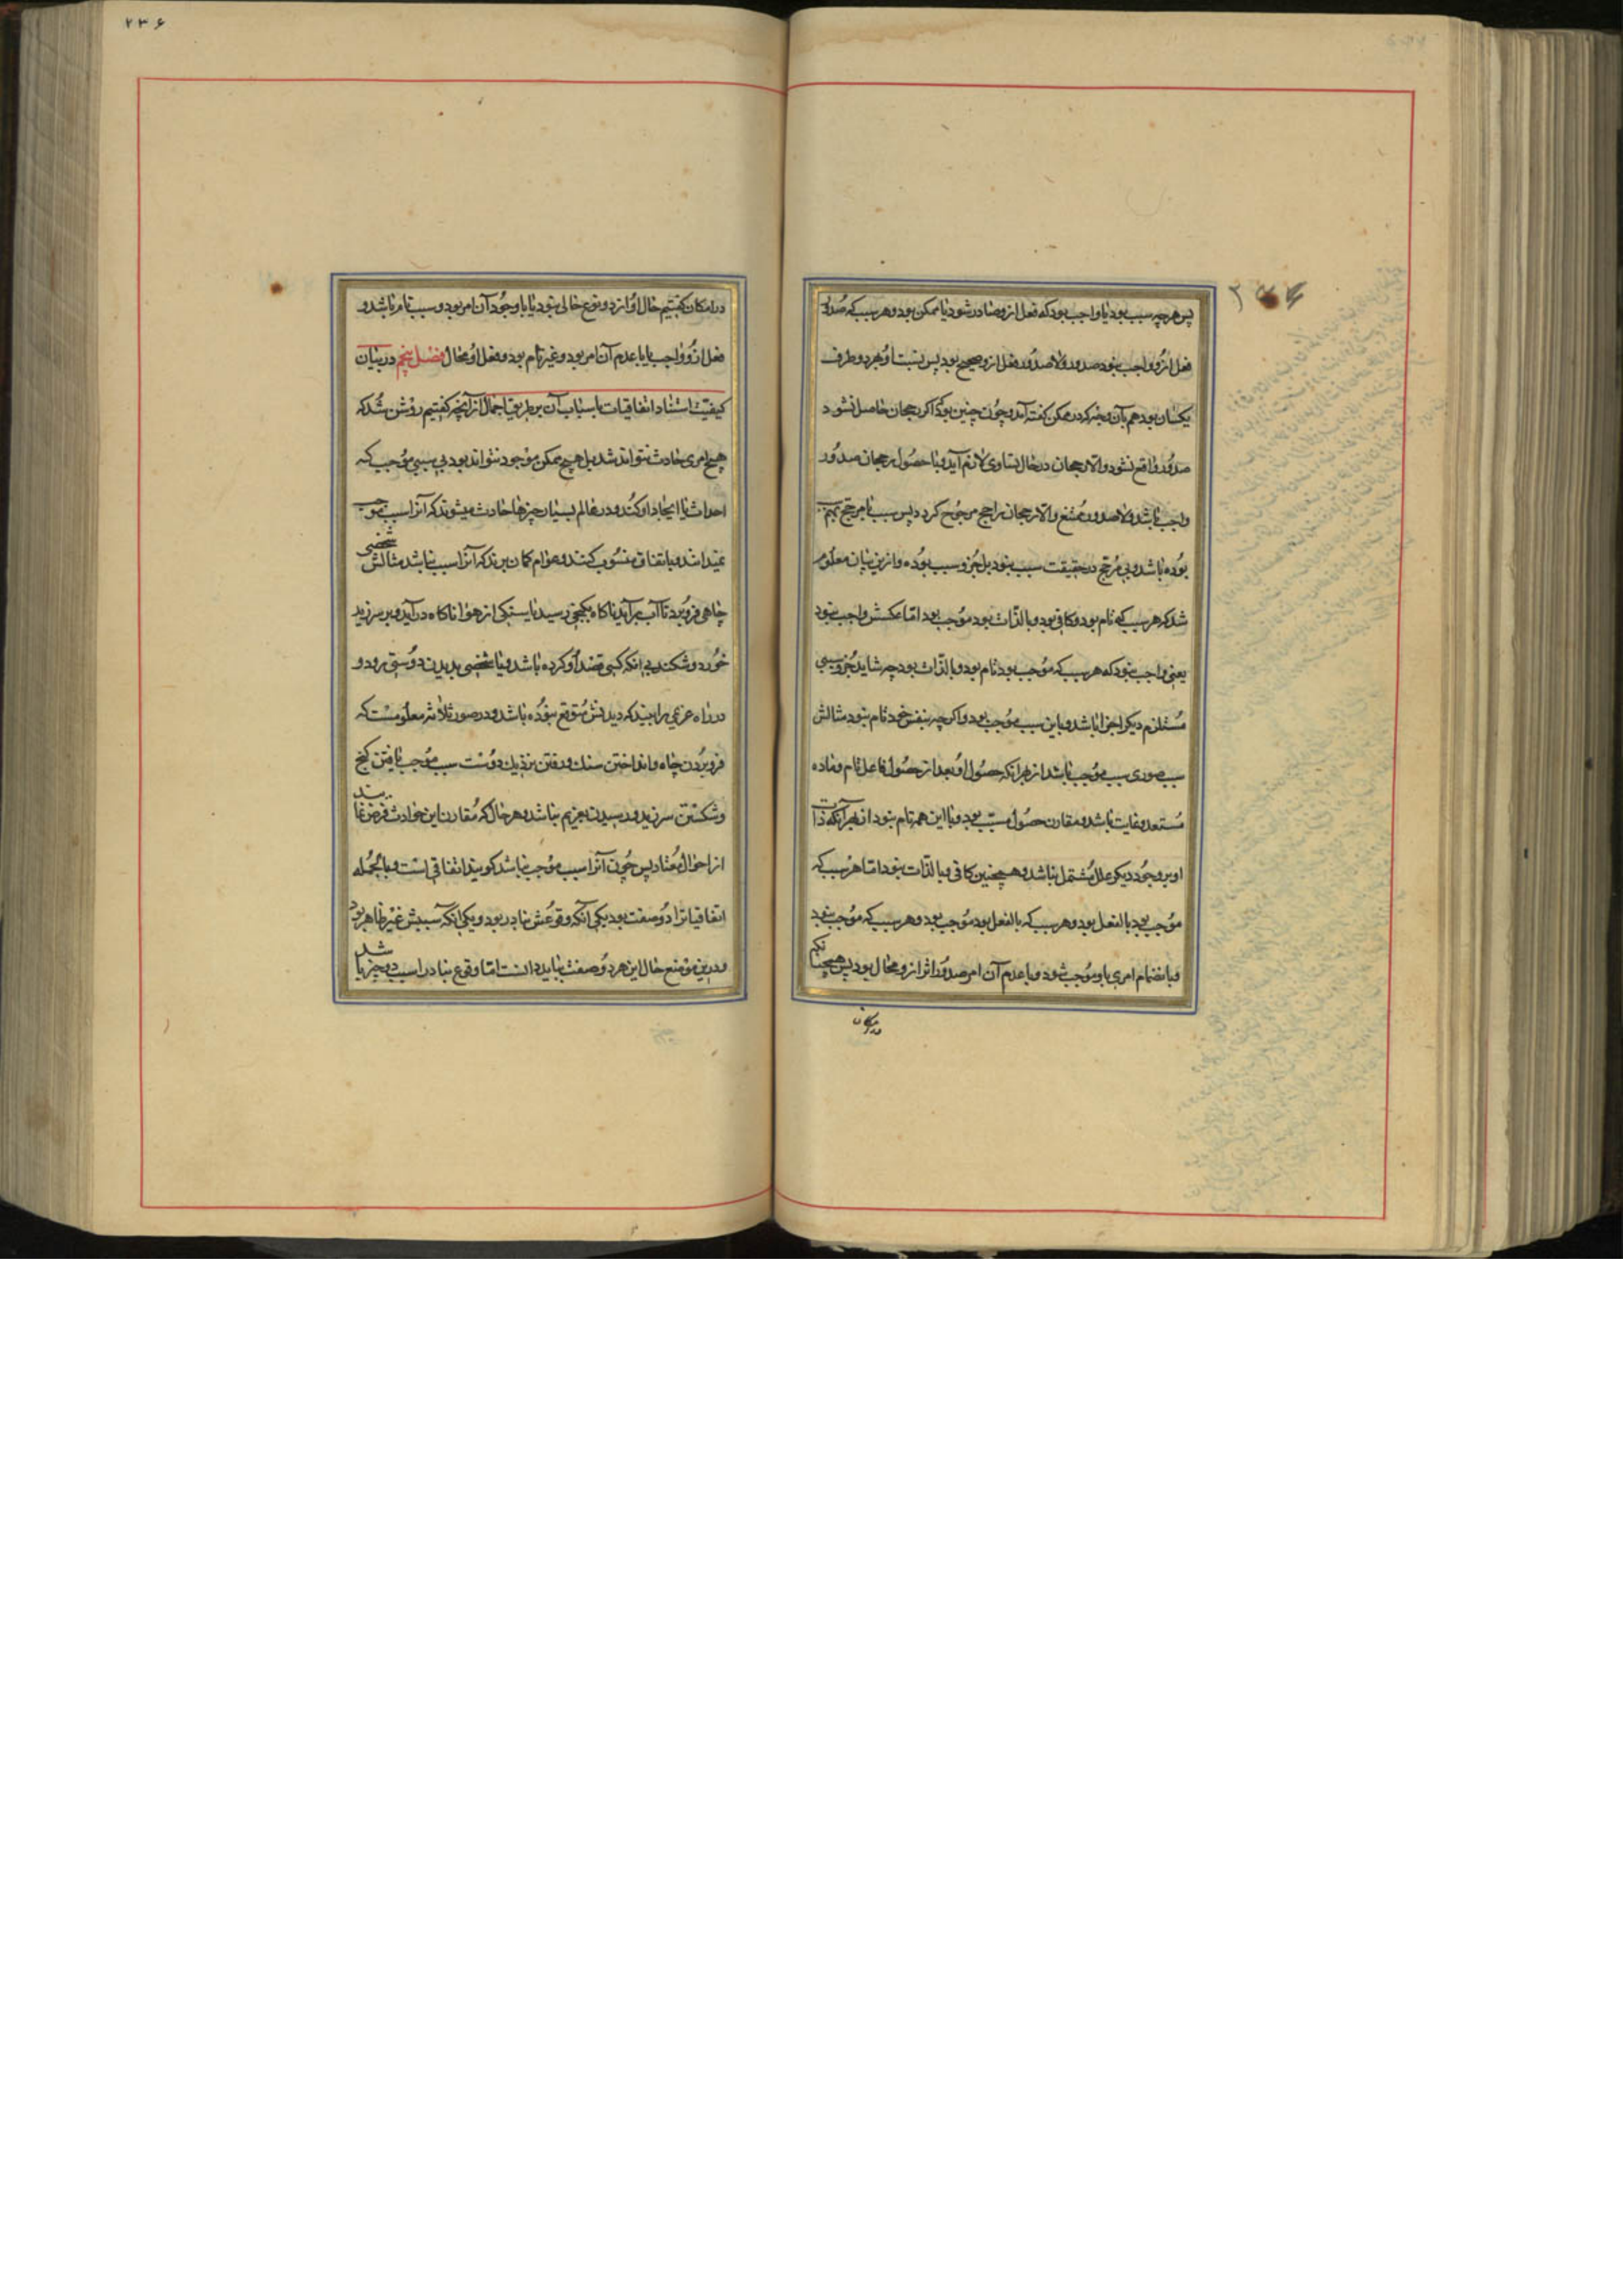 پس هرچه سبب بود یا واجب بود که فعل ازو صادر شود یا ممکن بود و هر سبب که صدور
فعل ازو واجب نبود صدور و لاصدور فعل ازو صحیح بود پس نسبت او بهر دو طرف
یکسان بود هم بآن وجه که در ممکن گفته آمد و چون چنین بود اگر رجحان حاصل نشود
صدور واقع نشود والا رجحان در حال تساوی لازم آید و با حصول رجحان صدور
واجب باشد و لاصدور ممتنع والا رجحان راجح مرجوح گردد پس سبب با مرجح سبب
بوده باشد و بی مرجح در حقیقت سبب نبود بل جزو سبب بوده و ازین بیان معلوم
شد که هر سبب که تام بود و کافی بود و بالذات بود موجب بود اما عکسش واجب نبود
یعنی واجب نبود که هر سبب که موجب بود تام بود و بالذات بود چه شاید جزو سببی
مستلزم دیگر اجزا باشد و باین سبب موجب بود و اگرچه بنفس خود تام نبود مثالش
سبب صوری سبب موجب باشد از بهر آنکه حصول او بعد از حصول فاعل تام و ماده
مستعد و غایت باشد و مقارن حصول مسبب بود و با این همه تام نبود از بهر آنکه ذات
او بر وجود دیگر علل مشتمل نباشد و همچنین کافی و بالذات نبود اما هر سبب که
موجب بود بالفعل بود و هر سبب که بالفعل بود موجب بود و هر سبب که موجب نبود
و بانضمام امری باو موجب شود و با عدم آن امر صدور اثر ازو محال بود پس همچنانکه
در امکان
۲۳۶
در امکان گفتیم حال او از دو نوع خالی نبود یا با وجود آن امر بود و سبب تام باشد و
فعل ازو واجب یا با عدم آن امر بود و غیر تام بود و فعل او محال فصل پنجم در بیان
کیفیت استناد اتفاقیات باسباب آن بر طریق اجمال از آنچه گفتیم روشن شد که
هیچ امری حادث نتواند شد بل هیچ ممکن موجود نتواند بود بی سببی موجب که
احداث یا ایجاد او کند و در عالم بسیار چیزها حادث میشوند که آنرا سبب موجب
نمیدانند و باتفاق منسوب کنند و عوام گمان برند که آنرا سبب نباشد مثالش شخصی
چاهی فرو برد تا آب برآید ناگاه بگنجی رسید یا سنگی از هوا ناگاه درآید و بر سر زید
خورد و شکند بی آنکه کسی قصد او کرده باشد و یا شخصی بدیدن دوستی رود و
در راه غریمی را بیند که دیدنش متوقع نبوده باشد و در صور ثلاثه معلومست که
فرو بردن چاه و انداختن سنگ و رفتن نزدیک دوست سبب موجب یافتن گنج
و شکستن سر زید و رسیدن بغریم نباشد و هر حال که مقارن این حوادث فرض نمایند
از احوال معتاد پس چون آنرا سبب موجب نباشد گویند اتفاقی است و بالجمله
اتفاقیات را دو صفت بود یکی آنکه وقوعش نادر بود و یکی آنکه سببش غیر ظاهر بود
و درین موضع حال این هر دو صفت بباید دانست اما وقوع نادر را سبب دو چیز باشد